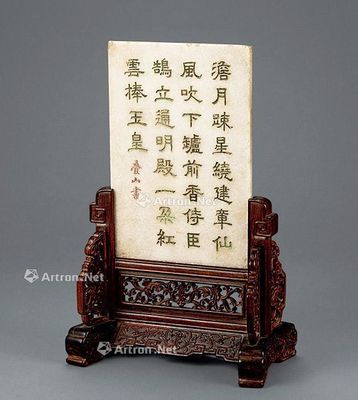 澹月踈星繞建章仙
風吹下鑪前香侍臣
鵠立通明殿一朶紅
雲捧玉皇
疊山書
Artron.Net
Artron.Net
Artron.Net